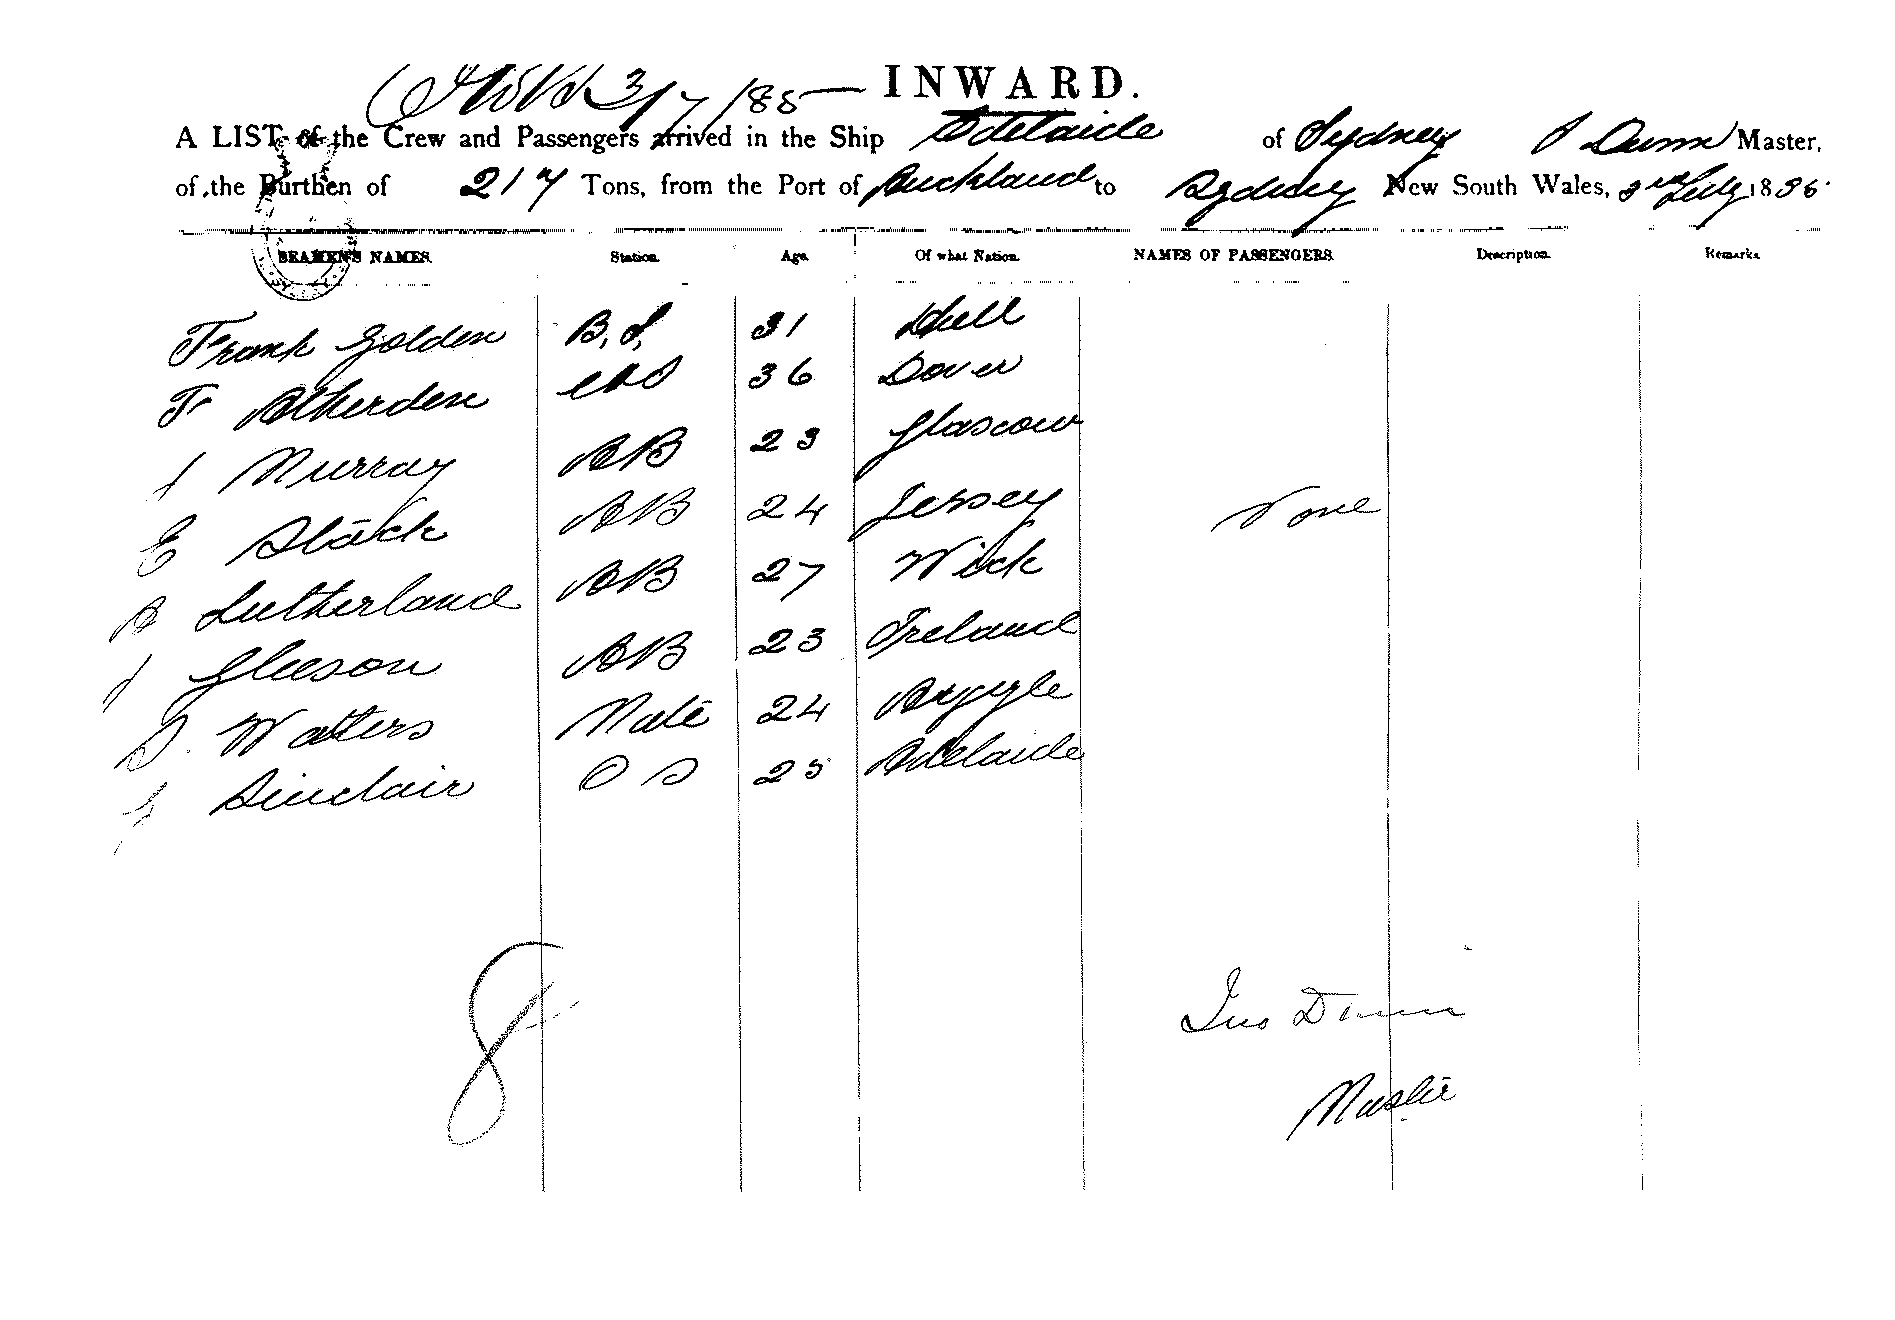 3/7/85 INWARD.
A LIST of the Crew and Passengers arrived in the Ship Adelaide of Sydney J Dunn Master,
of the Burthen of 217 Tons, from the Port of Auckland to Sydney New South Wales, 3rd July 1885
SEAMEN'S NAMES. Station. Age. Of what Nation. NAMES OF PASSENGERS. Description. Remarks.
Frank Golden B.S. 31 Hull
F Atherden 36 Dover
J Murray AB 23 Glascow
E Slack AB 24 Jersey None
A Sutherland AB 27 Wick
J Gleeson AB 23 Ireland
D. Watters Mate 24 Argyle
G Sinclair OS 25 Adelaide
8
Jno Dunn
Master